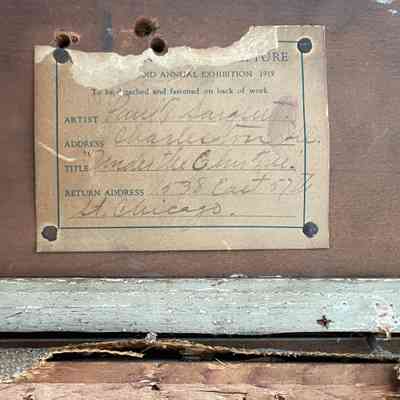 TURE
ND ANNUAL EXHIBITION 1919
To be detached and fastened on back of work
ARTIST Paul T Sargent.
ADDRESS Charleston Ill.
TITLE "Under the Elm Tree."
RETURN ADDRESS 1538 East 57th
St. Chicago.